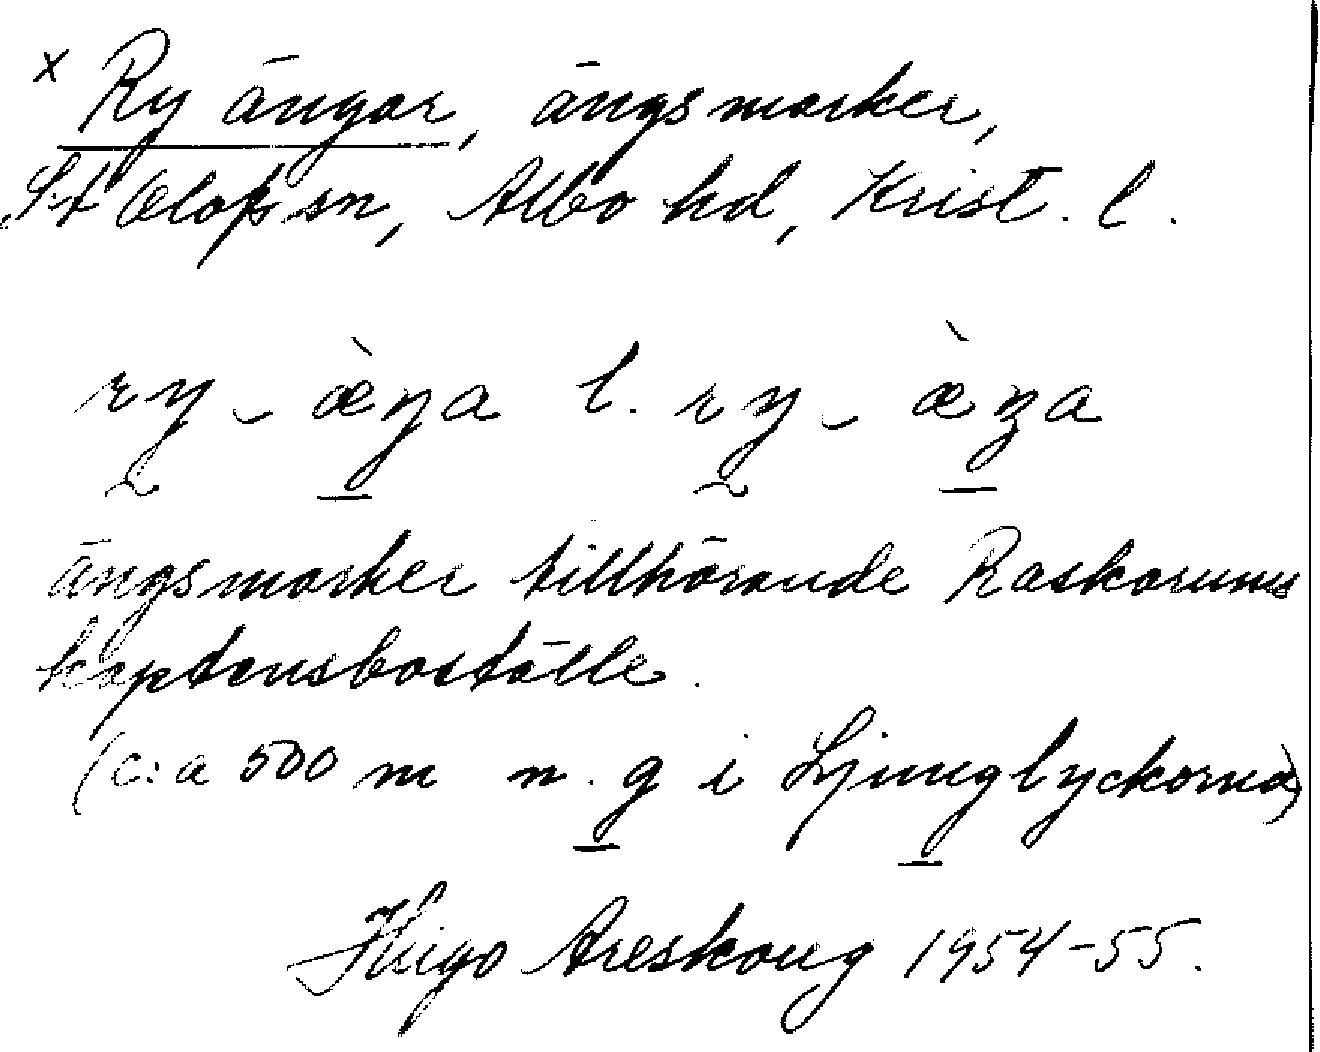 x Ry ängar, ängsmarker,
S:t Olofs sn, Albo hd, Krist. l.
ry - æ̀ŋa l. ry - æ̀ŋa
ängsmarker tillhörande Raskarums
kaptensboställe.
(c:a 500 m n. g i Ljunglyckorna)
Hugo Areskoug 1954-55.